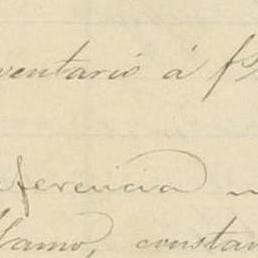 ventario á f
ferencia
lamo, constan